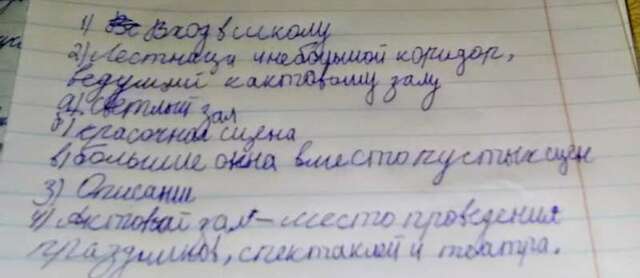 1) Вход в школу
2) Лестница и небольшой коридор,
ведущий к актовому залу
а) светлый зал
б) красочная сцена
в) большие окна вместо пустых сцен
3) Описани
4) Актовай зал – место проведения
праздников, спектаклей и театра.